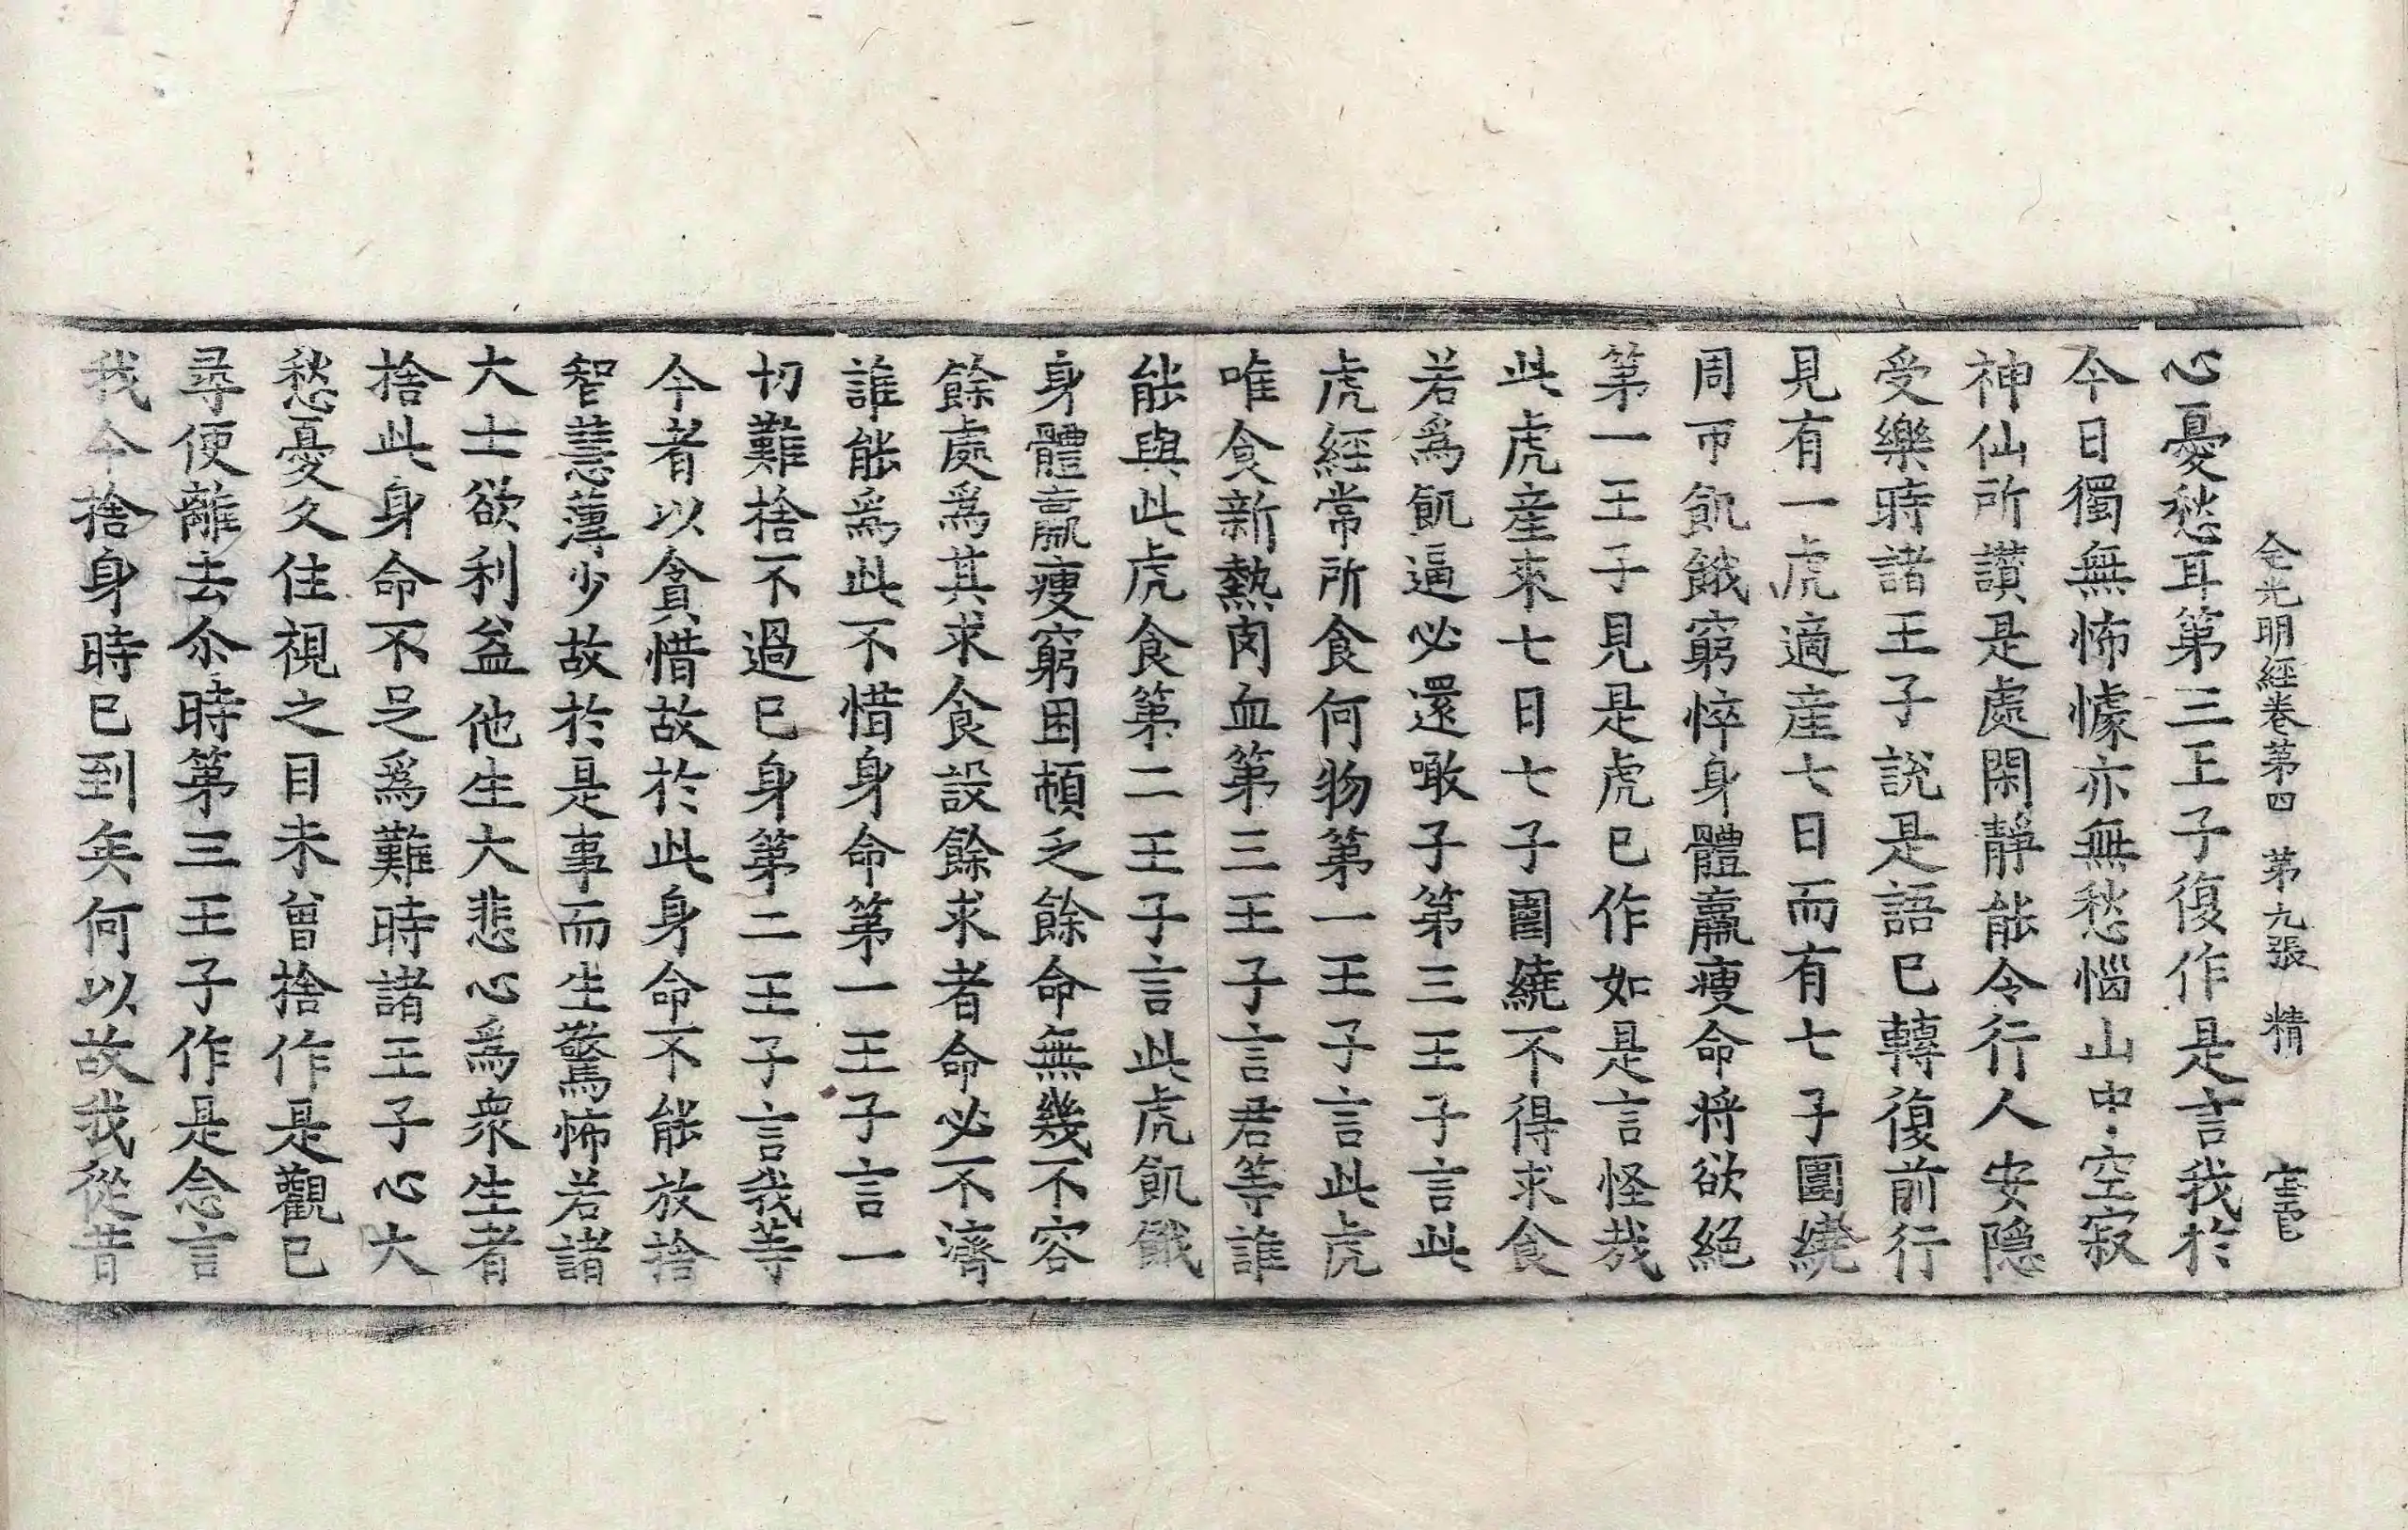 金光明經卷第四　第九張　精
心憂愁耳第三王子復作是言我於
今日獨無怖懅亦無愁惱山中空寂
神仙所讃是處閑靜能令行人安隱
受樂時諸王子說是語已轉復前行
見有一虎適產七日而有七子圍繞
周帀飢餓窮悴身體羸瘦命将欲絕
第一王子見是虎已作如是言怪哉
此虎產來七日七子圍繞不得求食
若爲飢逼必還噉子第三王子言此
虎經常所食何物第一王子言此虎
唯食新熱肉血第三王子言君等誰
能與此虎食第二王子言此虎飢餓
身體羸瘦窮困頓乏餘命無幾不容
餘處爲其求食設餘求者命必不濟
誰能爲此不惜身命第一王子言一
切難捨不過已身第二王子言我等
今者以貪惜故於此身命不能放捨
智慧薄少故於是事而生驚怖若諸
大士欲利益他生大悲心爲衆生者
捨此身命不足爲難時諸王子心大
愁憂久住視之目未曾捨作是觀已
尋便離去尒時第三王子作是念言
我今捨身時已到矣何以故我從昔